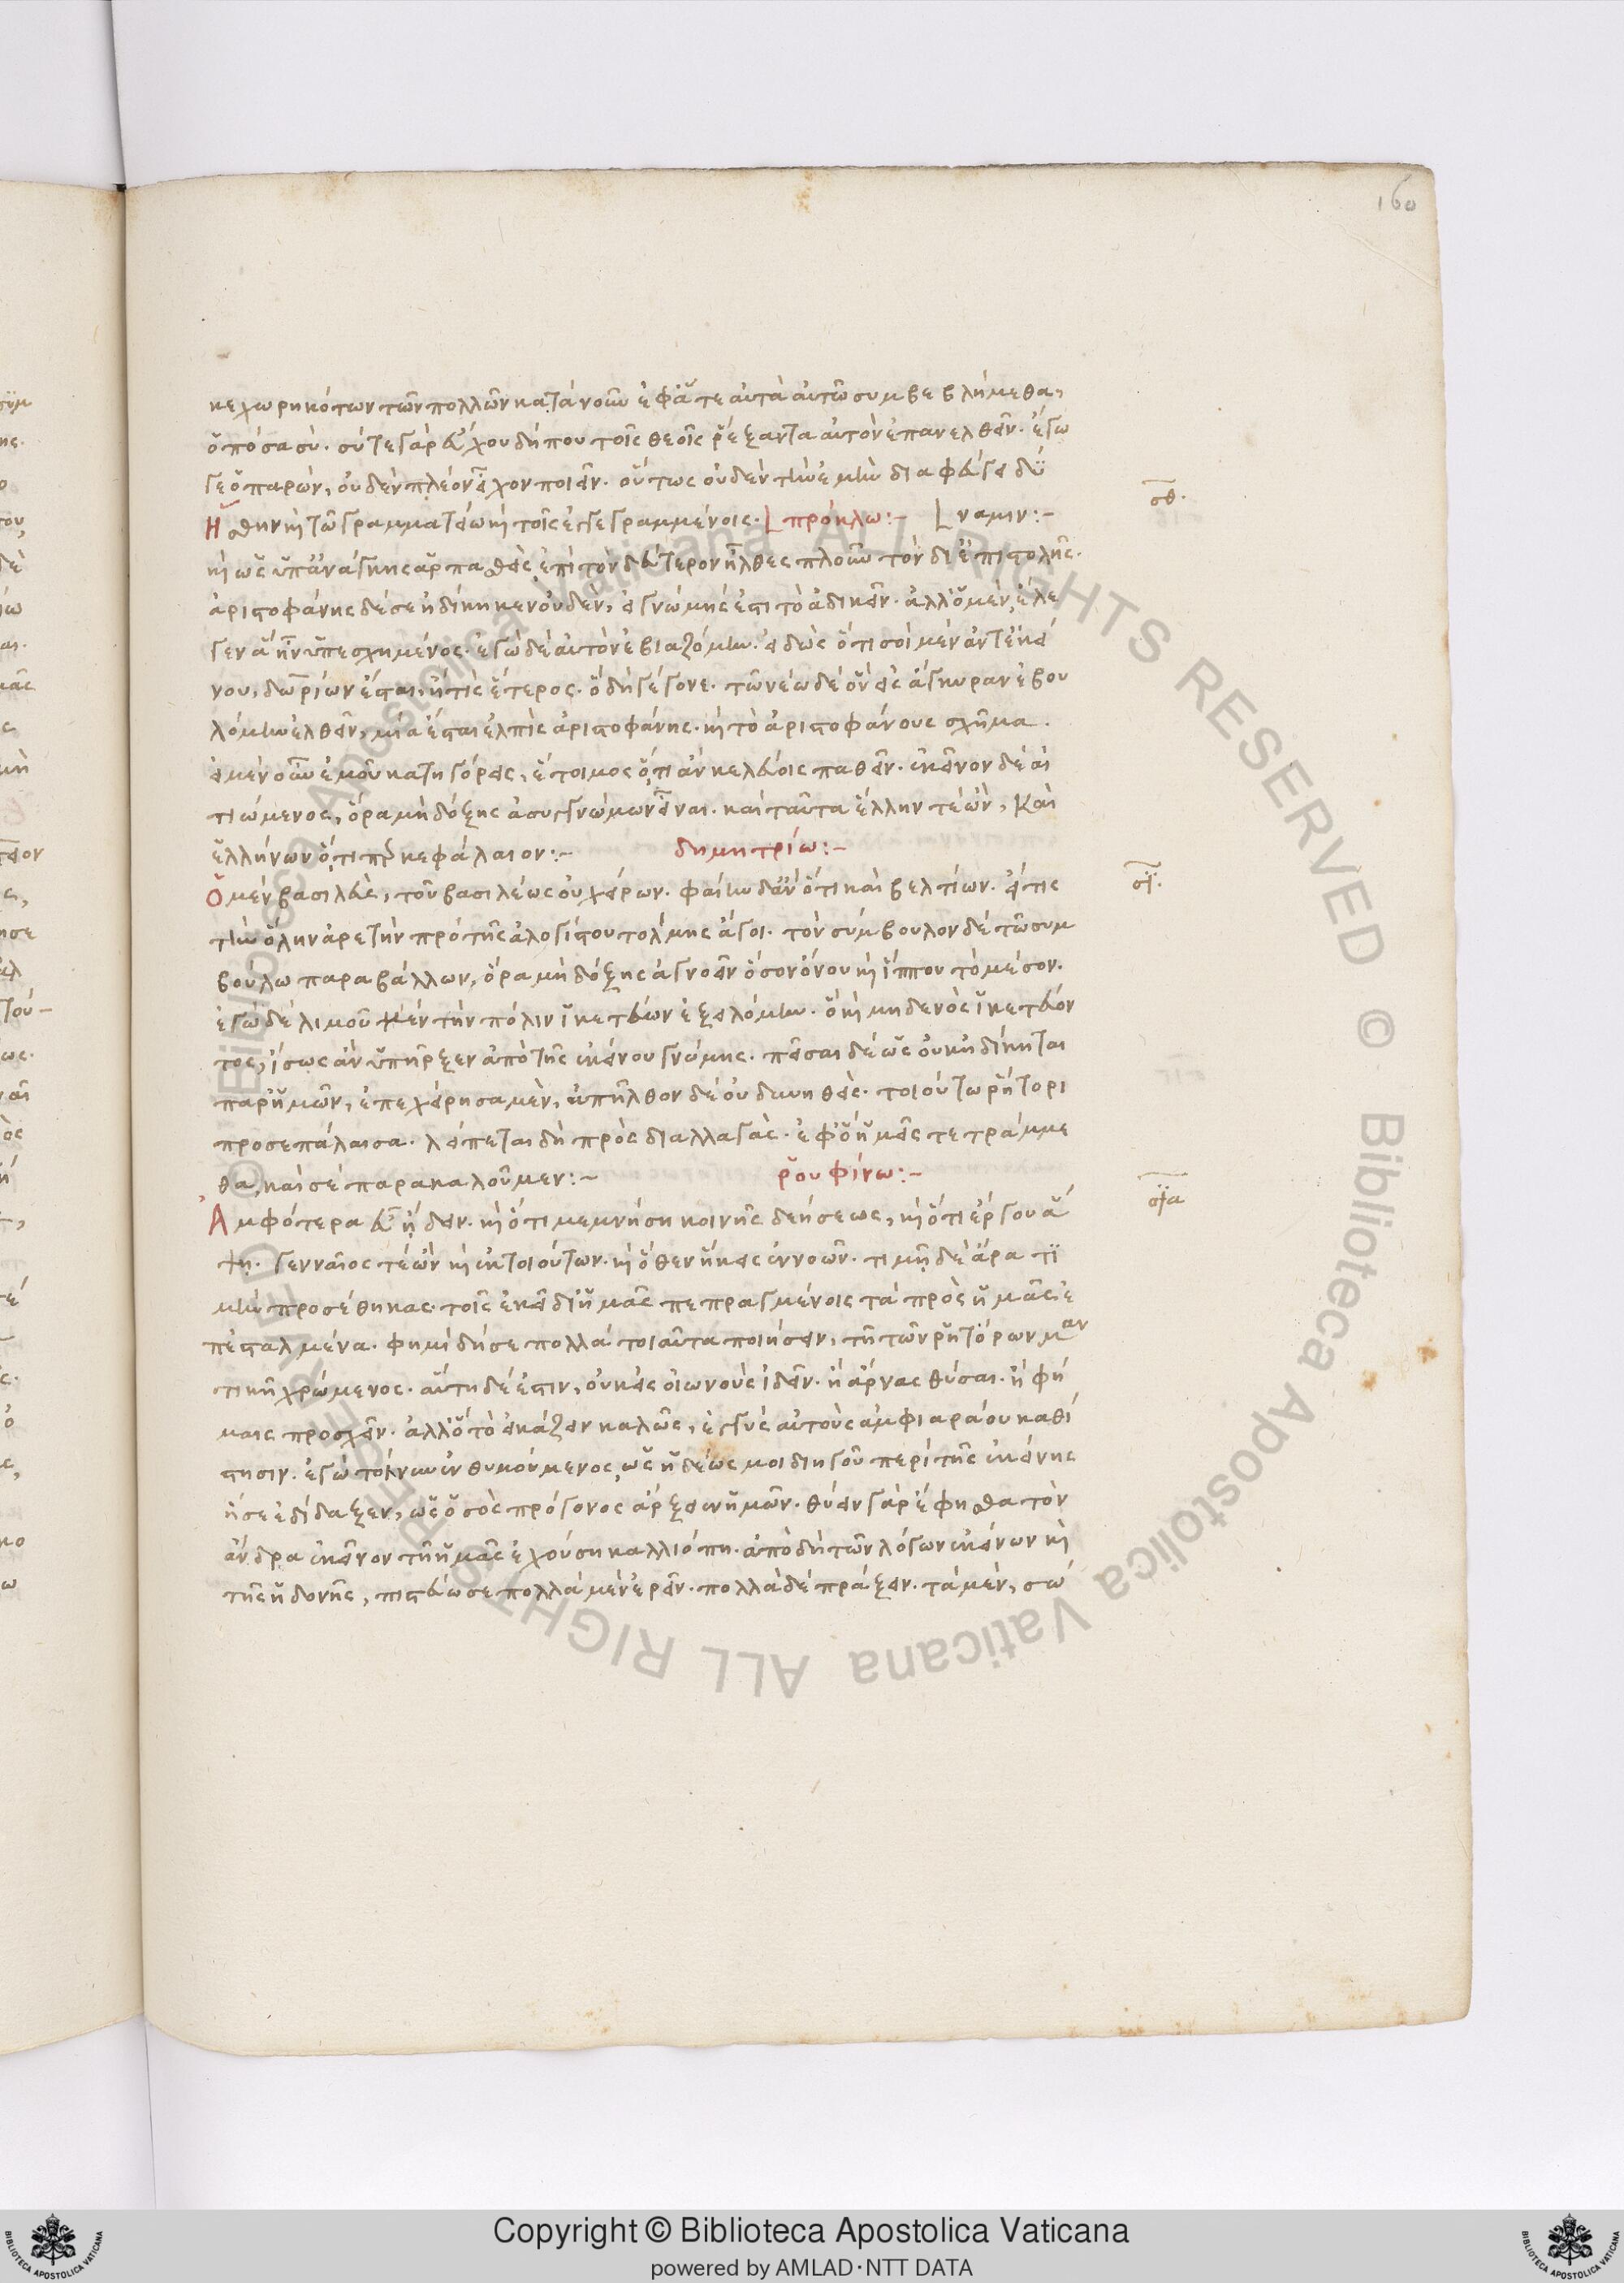 160
κεχωρηκότων τῶν πολλῶν κατὰ νοῦν ἐφ' ἅτε αὐτὰ αὐτῶ συμβεβλήμεθα,
ὁπόσα σύ. σύ τε γὰρ εὔχου δήπου τοῖς θεοῖς ῥέξαντα αὐτὸν ἐπανελθεῖν. ἐγώ
γε ὁ παρών, οὐδὲν πλέον εἶχον ποιεῖν. οὕτως οὐδὲν τὴν ἐμὴν διαφεύγει δύ
Ἥσθην καὶ τῶ γραμματείω καὶ τοῖς ἐγγεγραμμένοις. πρόκλω:- ναμιν:-
σθ.
καὶ ὡς ὑπ' ἀνάγκης ἁρπασθεὶς ἐπὶ τὸν δεύτερον ἦλθες πλοῦν τὸν δι' ἐπιστολῆς.
ἀριστοφάνης δέ σε ἠδίκηκεν οὐδέν, εἰ γνώμης ἐστι τὸ ἀδικεῖν. ἀλλ' ὁ μὲν, ἔλε
γεν ἃ ἦν ὑπεσχημένος. ἐγὼ δὲ αὐτὸν ἐβιαζόμην. εἰδὼς ὅτι σοὶ μὲν ἀντ' ἐκεί
νου, δωρίων ἔσται, ἤ τις ἕτερος. ὃ δὴ γέγονε. τῶ νέω δὲ ὃν εἰς ἄγκυραν ἐβου
λόμην ἐλθεῖν, μία ἔσται ἐλπὶς ἀριστοφάνης. καὶ τὸ ἀριστοφάνους σχῆμα.
εἰ μὲν οὖν ἐμοῦ κατηγορεῖς, ἕτοιμος ὅ,τι ἂν κελεύοις παθεῖν. ἐκεῖνον δὲ αἰ
τιώμενος, ὅρα μὴ δόξης ἀσυγγνώμων εἶναι. καὶ ταῦτα ἕλλην τε ὢν, Καὶ
ἑλλήνων ὅ,τι περ κεφάλαιον:- δημητρίω:-
Ὁ μὲν βασιλεὺς, τοῦ βασιλέως οὐ χείρων. φαίην δ' ἂν ὅτι καὶ βελτίων. εἴ τις
σϊ.
τὴν ὅλην ἀρετὴν πρὸ τῆς ἀλογίστου τόλμης ἄγοι. τὸν σύμβουλον δὲ τῶ συμ
βούλω παραβάλλων, ὅρα μὴ δόξης ἀγνοεῖν ὅσον ὄνου καὶ ἵππου τὸ μέσον.
ἐγὼ δὲ λιμοῦ μὲν τὴν πόλιν ἱκετεύων ἐξειλόμην. ὃ καὶ μηδενὸς ἱκετεύον
τος, ἴσως ἂν ὑπῆρξεν ἀπὸ τῆς ἐκείνου γνώμης. πεῖσαι δὲ ὡς οὐκ ἠδίκηται
παρ' ἡμῶν, ἐπεχείρησα μὲν, ἀπῆλθον δὲ οὐ δυνηθείς. τοιούτω ῥήτορι
προσεπάλαισα. λείπεται δὴ πρὸς διαλλαγάς. ἐφ' ὃ ἡμεῖς τε τετράμμε
θα, καὶ σὲ παρακαλοῦμεν:- ῥουφίνω:-
Ἀμφότερα εὖ ἤδειν. καὶ ὅτι μεμνήση κοινῆς δεήσεως, καὶ ὅτι ἔργου ἅ
σϊα
ψη. γενναῖός τε ὢν καὶ ἐκ τοιούτων. καὶ ὅθεν ἥκεις ἐννοῶν. τιμῆ δὲ ἄρα τι
μὴν προσέθηκας. τοῖς ἐκεῖ δι' ἡμᾶς πεπραγμένοις τὰ πρὸς ἡμᾶς ἐ
πεσταλμένα. φημὶ δή σε πολλὰ τοιαῦτα ποιήσειν, τῆ τῶν ῥητόρων μαν
τικῆ χρώμενος. αὕτη δέ ἐστιν, οὐκ εἰς οἰωνοὺς ἰδεῖν. ἢ ἄρνας θῦσαι. ἢ φή
μαις προσχεῖν. ἀλλ' ὃ τὸ εἰκάζειν καλῶς, ἐγγὺς αὐτοὺς ἀμφιαράου καθί
στησιν. ἐγὼ τοίνυν ἐνθυμούμενος, ὡς ἡδέως μοι διηγοῦ περὶ τῆς ἐκείνης
ἥ σε ἐδίδαξεν, ὡς ὁ σὸς πρόγονος ἄρξειεν ἡμῶν. θύειν γὰρ ἔφησθα τὸν
ἄνδρα ἐκεῖνον τῆ ἡμᾶς ἐχούση καλλιόπη. ἀπὸ δὴ τῶν λόγων ἐκείνων καὶ
τῆς ἡδονῆς, πιστεύω σε πολλὰ μὲν ἐρεῖν. πολλὰ δὲ πράξειν. τὰ μὲν, σώ
Copyright © Biblioteca Apostolica Vaticana
powered by AMLAD・NTT DATA